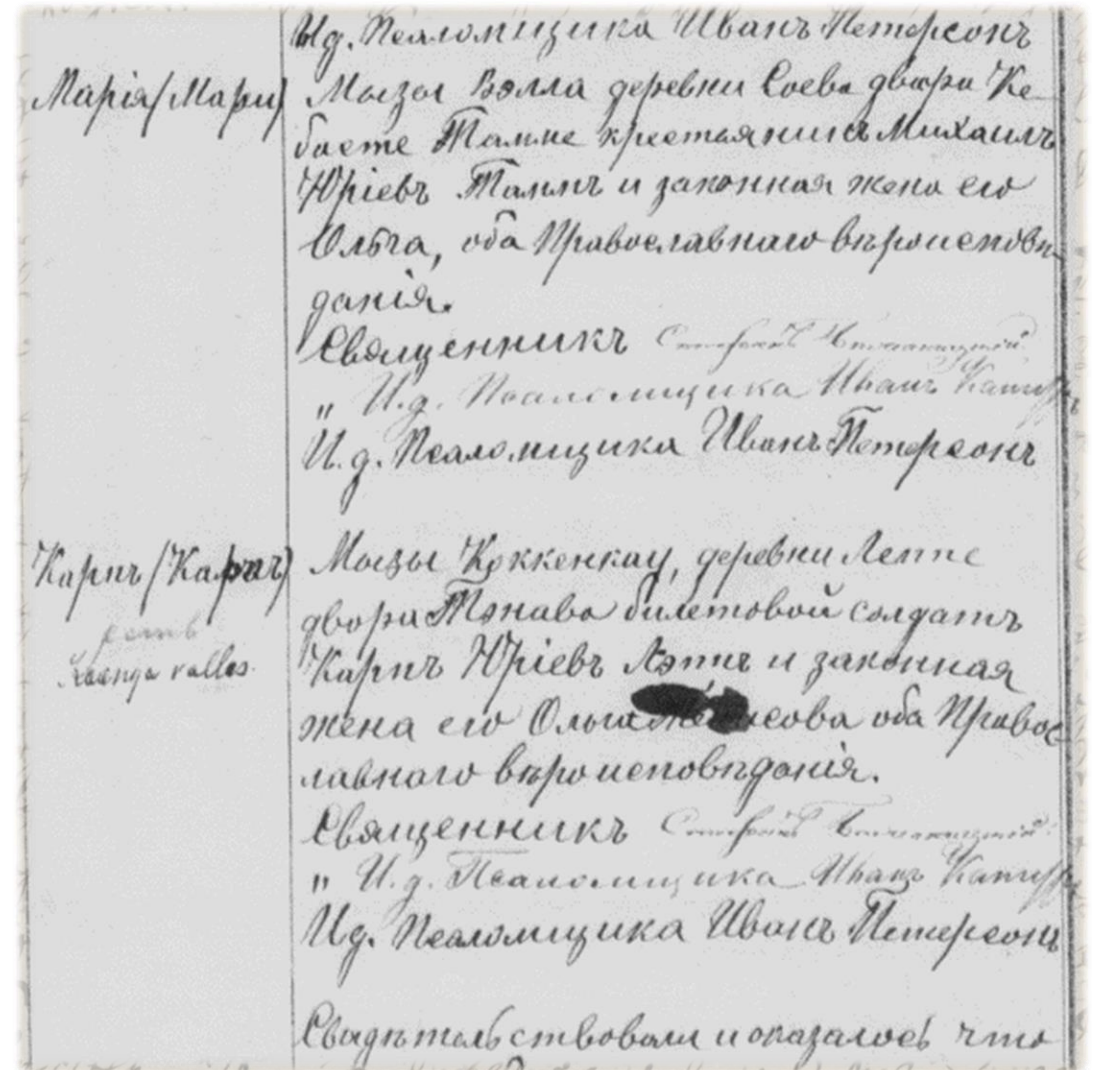 И.д. Псаломщика Иванъ Петерсонъ
Марія (Мари)
Мызы Вэлла деревни Соева двора Ке-
басте Тамме крестьянинъ Михаилъ
Юріевъ Таммъ и законная жена его
Ольга, оба Православнаго вѣроисповѣ-
данія.
Священникъ
„ И.д. Псаломщика Иванъ
И.д. Псаломщика Иванъ Петерсонъ
Карпъ (Карпъ)
Kaenga vallas.
Мызы Коккенкау, деревни Леппе
двора Тэнава билетовой солдатъ
Карпъ Юріевъ Лэппъ и законная
жена его Ольга оба Правос
лавнаго вѣроисповѣданія.
Священникъ
„ И.д. Псаломщика Иванъ
И.д. Псаломщика Иванъ Петерсонъ
Свидѣтельствовали и оказалось что